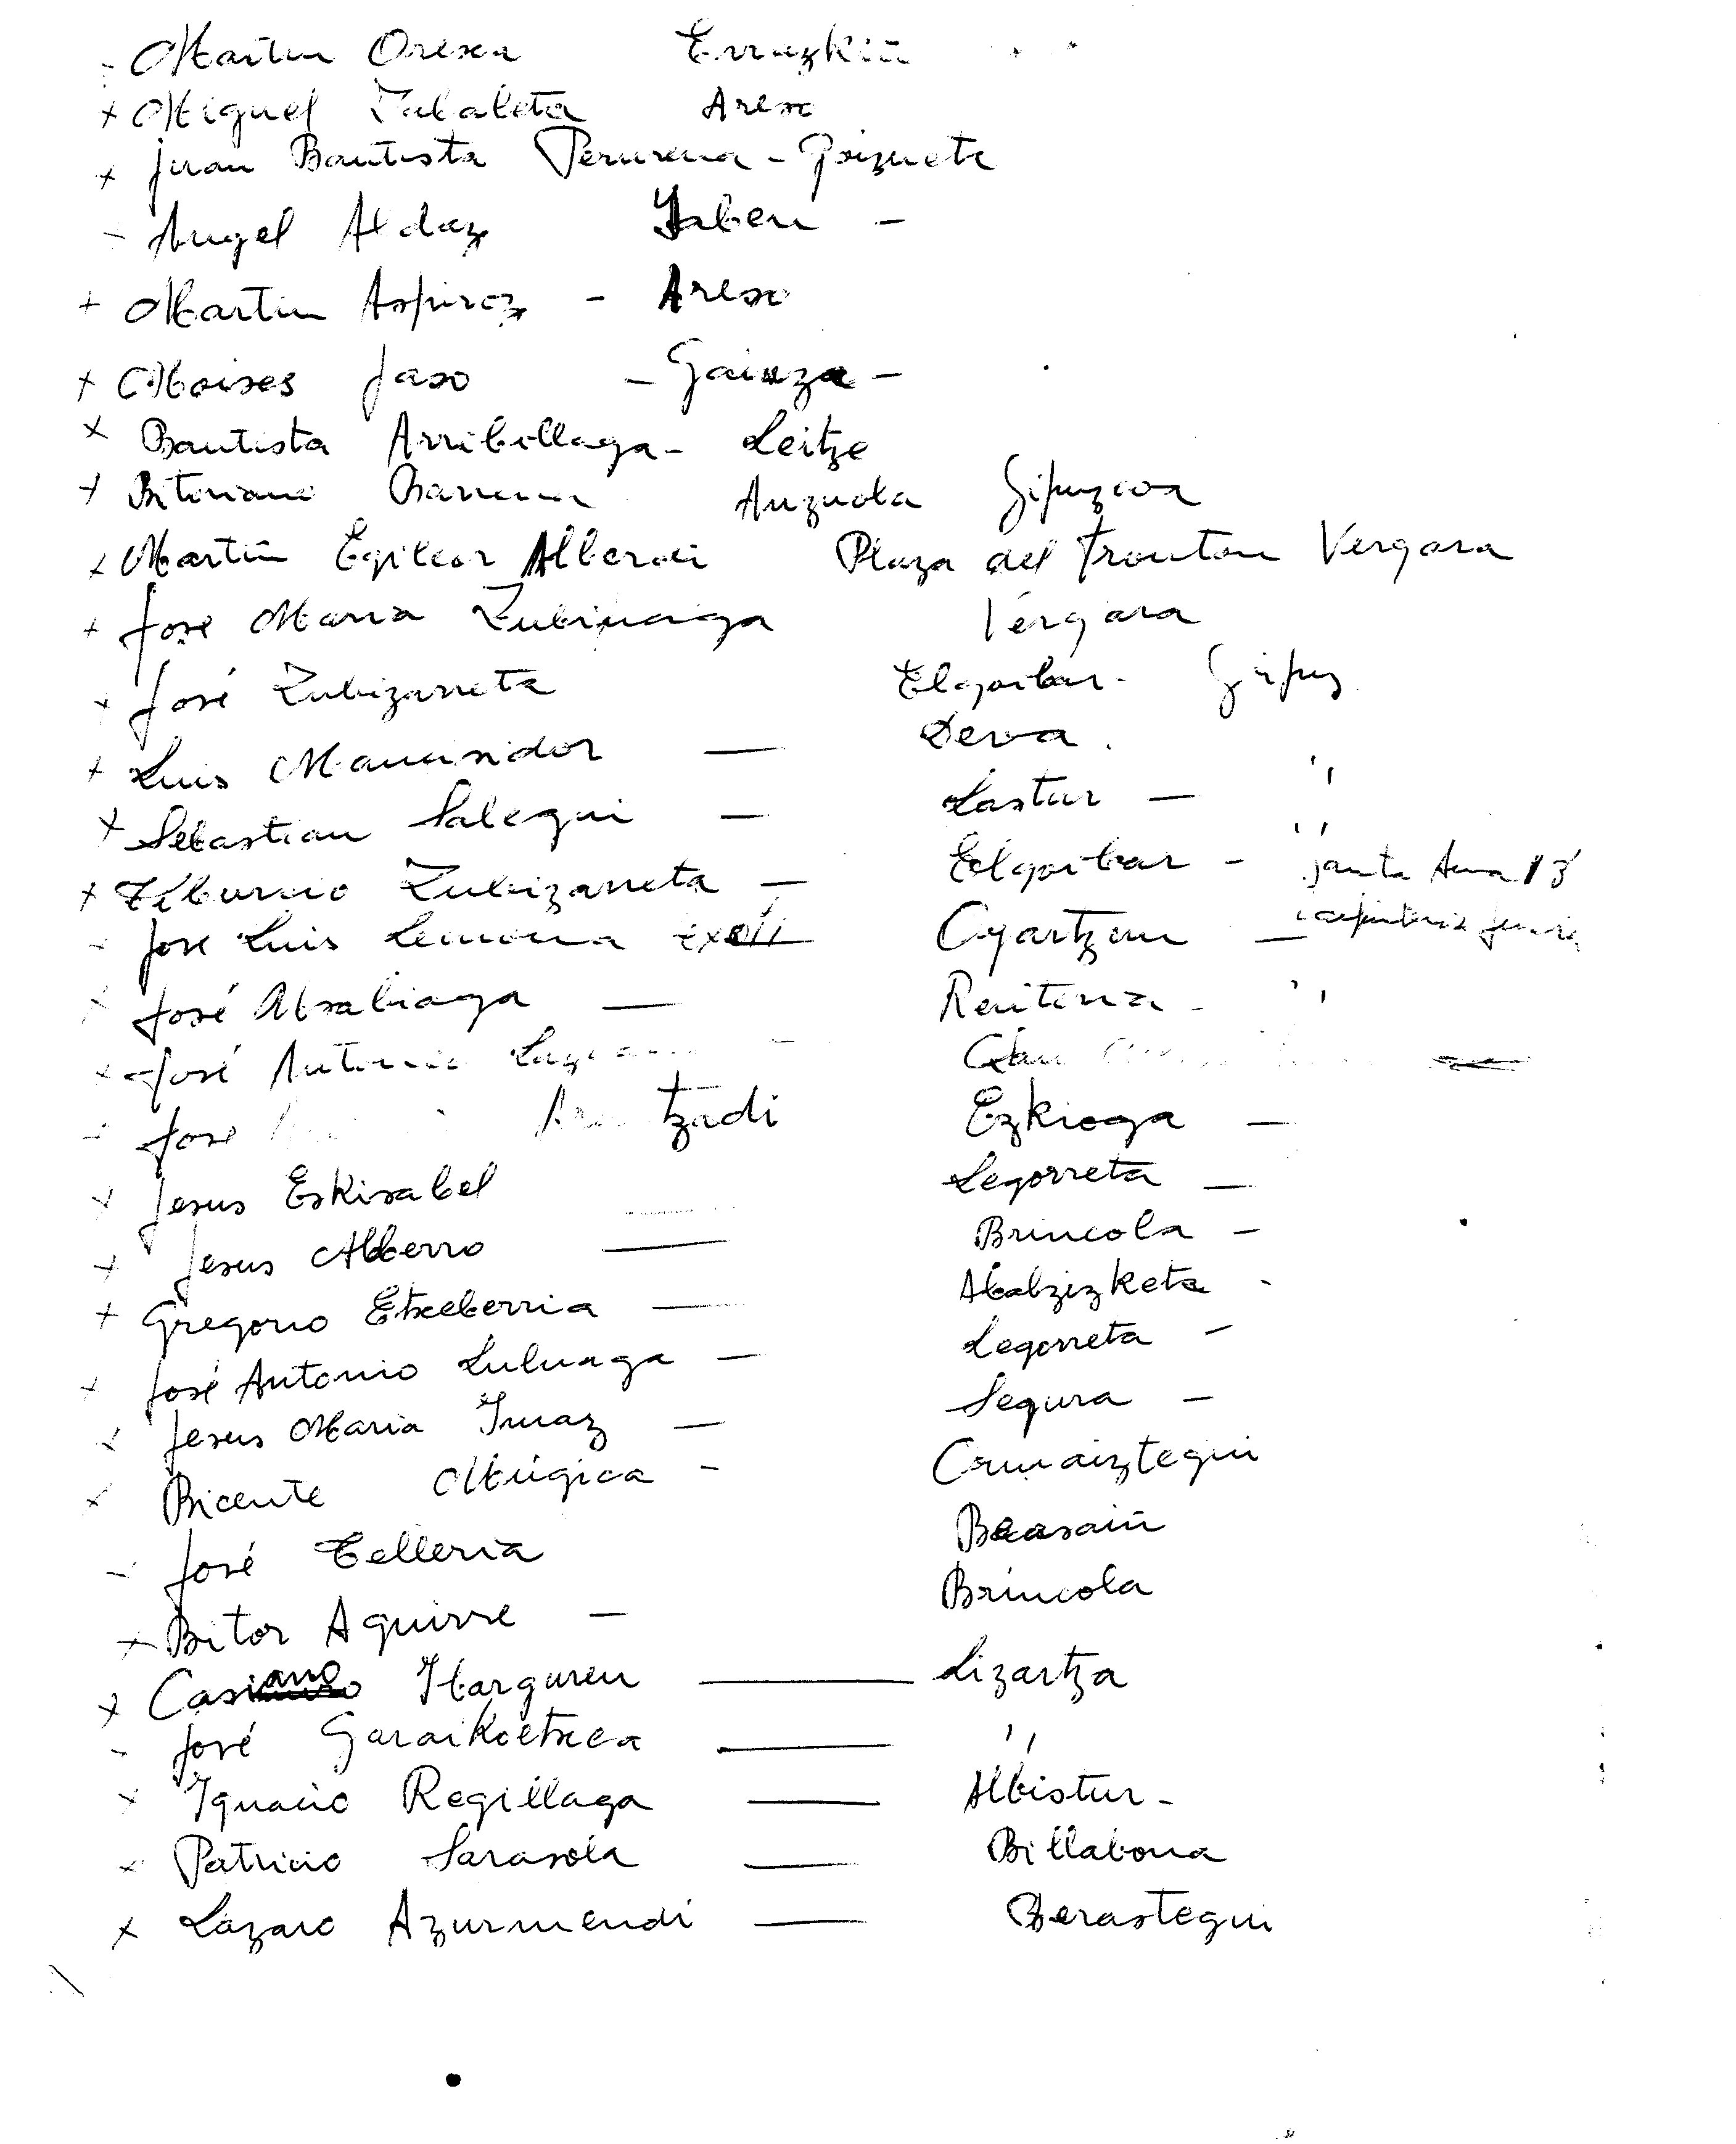 - Martin Orexa Errazkin
+ Miguel Zabaleta Areso
+ Juan Bautista Perurena - Goizueta
- Angel Aldaz Jaben -
+ Martin Aspiroz - Areso
+ Moises Jaso - Gainza -
x Bautista Arribillaga - Leitze
+ Bitoriano Barrena Anzuola Gipuzcoa
x Martin Egileor Alberdi Plaza del Fronton Vergara
+ Jose Maria Zubinaga Vergara
+ José Zubizarreta Elgoibar - Gipuz
+ Luis Mancisidor — Deva . ''
+ Sebastian Salegui — Lastur — ''
+ Tiburcio Zubizarreta — Elgoibar - Santa Ana 13
- Jose Luis Lemona Oyartzun — carpinteria
José Alsabiaga — Renteria - ''
x José Antonio - San
- Jose tzadi Ezkioga —
+ Jesus Eskisabel Legorreta —
+ Jesus Alberro — Brincola -
+ Gregorio Etxeberria — Abaltzizketa -
+ José Antonio Luluaga — Legorreta -
x Jesus Maria Imaz — Segura -
x Bicente Mugica - Ormaiztegui
- José Telleria Beasain
x Bitor Aguirre - Brincola
x Casiano Ibarguren — Lizartza
- José Garaikoetxea — ''
x Ignacio Regillaga — Albistur -
x Patricio Sarasola — Billabona
x Lazaro Azurmendi — Berastegui